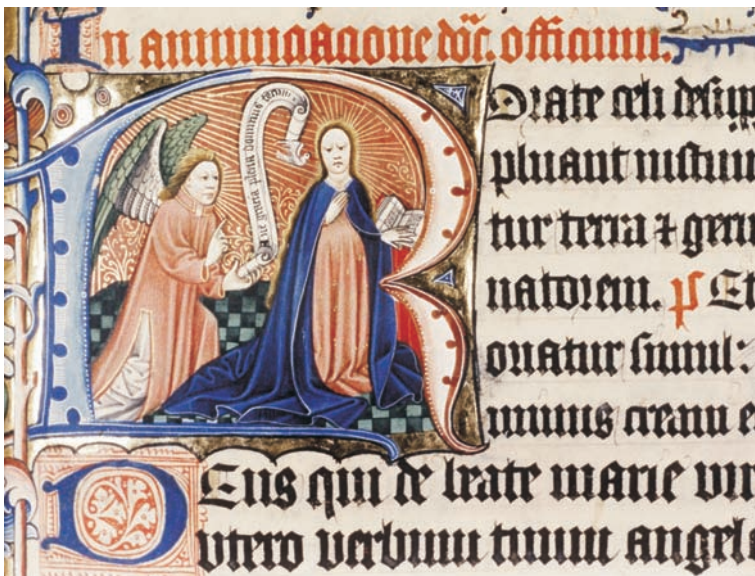 In annunciacione officium.
Aue gracia plena dominus tecum
Rorate celi desup
pluant iustum
tur terra ⁊ germ
natorem. ps Et
oriatur simul:
minus creaui e
DEus qui de beate marie vir
vtero verbum tuum angel